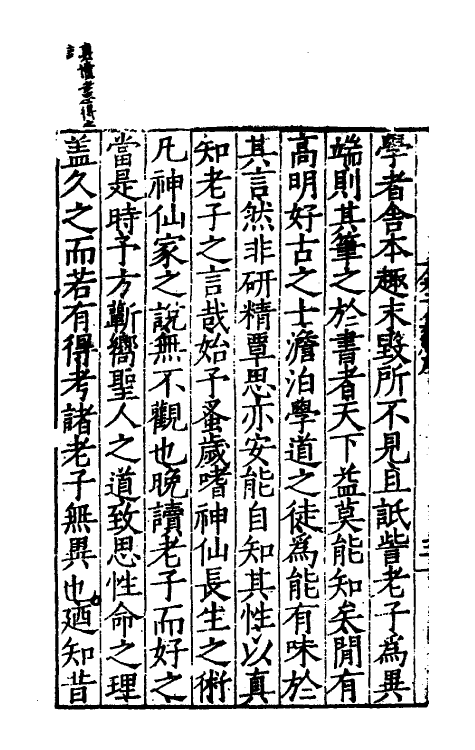 學者舍本趣末毀所不見且詆訾老子為異
端則其筆之於書者天下益莫能知矣閒有
高明好古之士澹泊學道之徒爲能有味於
其言然非研精覃思亦安能自知其性以真
知老子之言哉始予蚤歲嗜神仙長生之術
凡神仙家之說無不觀也晚讀老子而好之
當是時予方斬嚮聖人之道致思性命之理
盖久之而若有得考諸老子無異也廼知昔